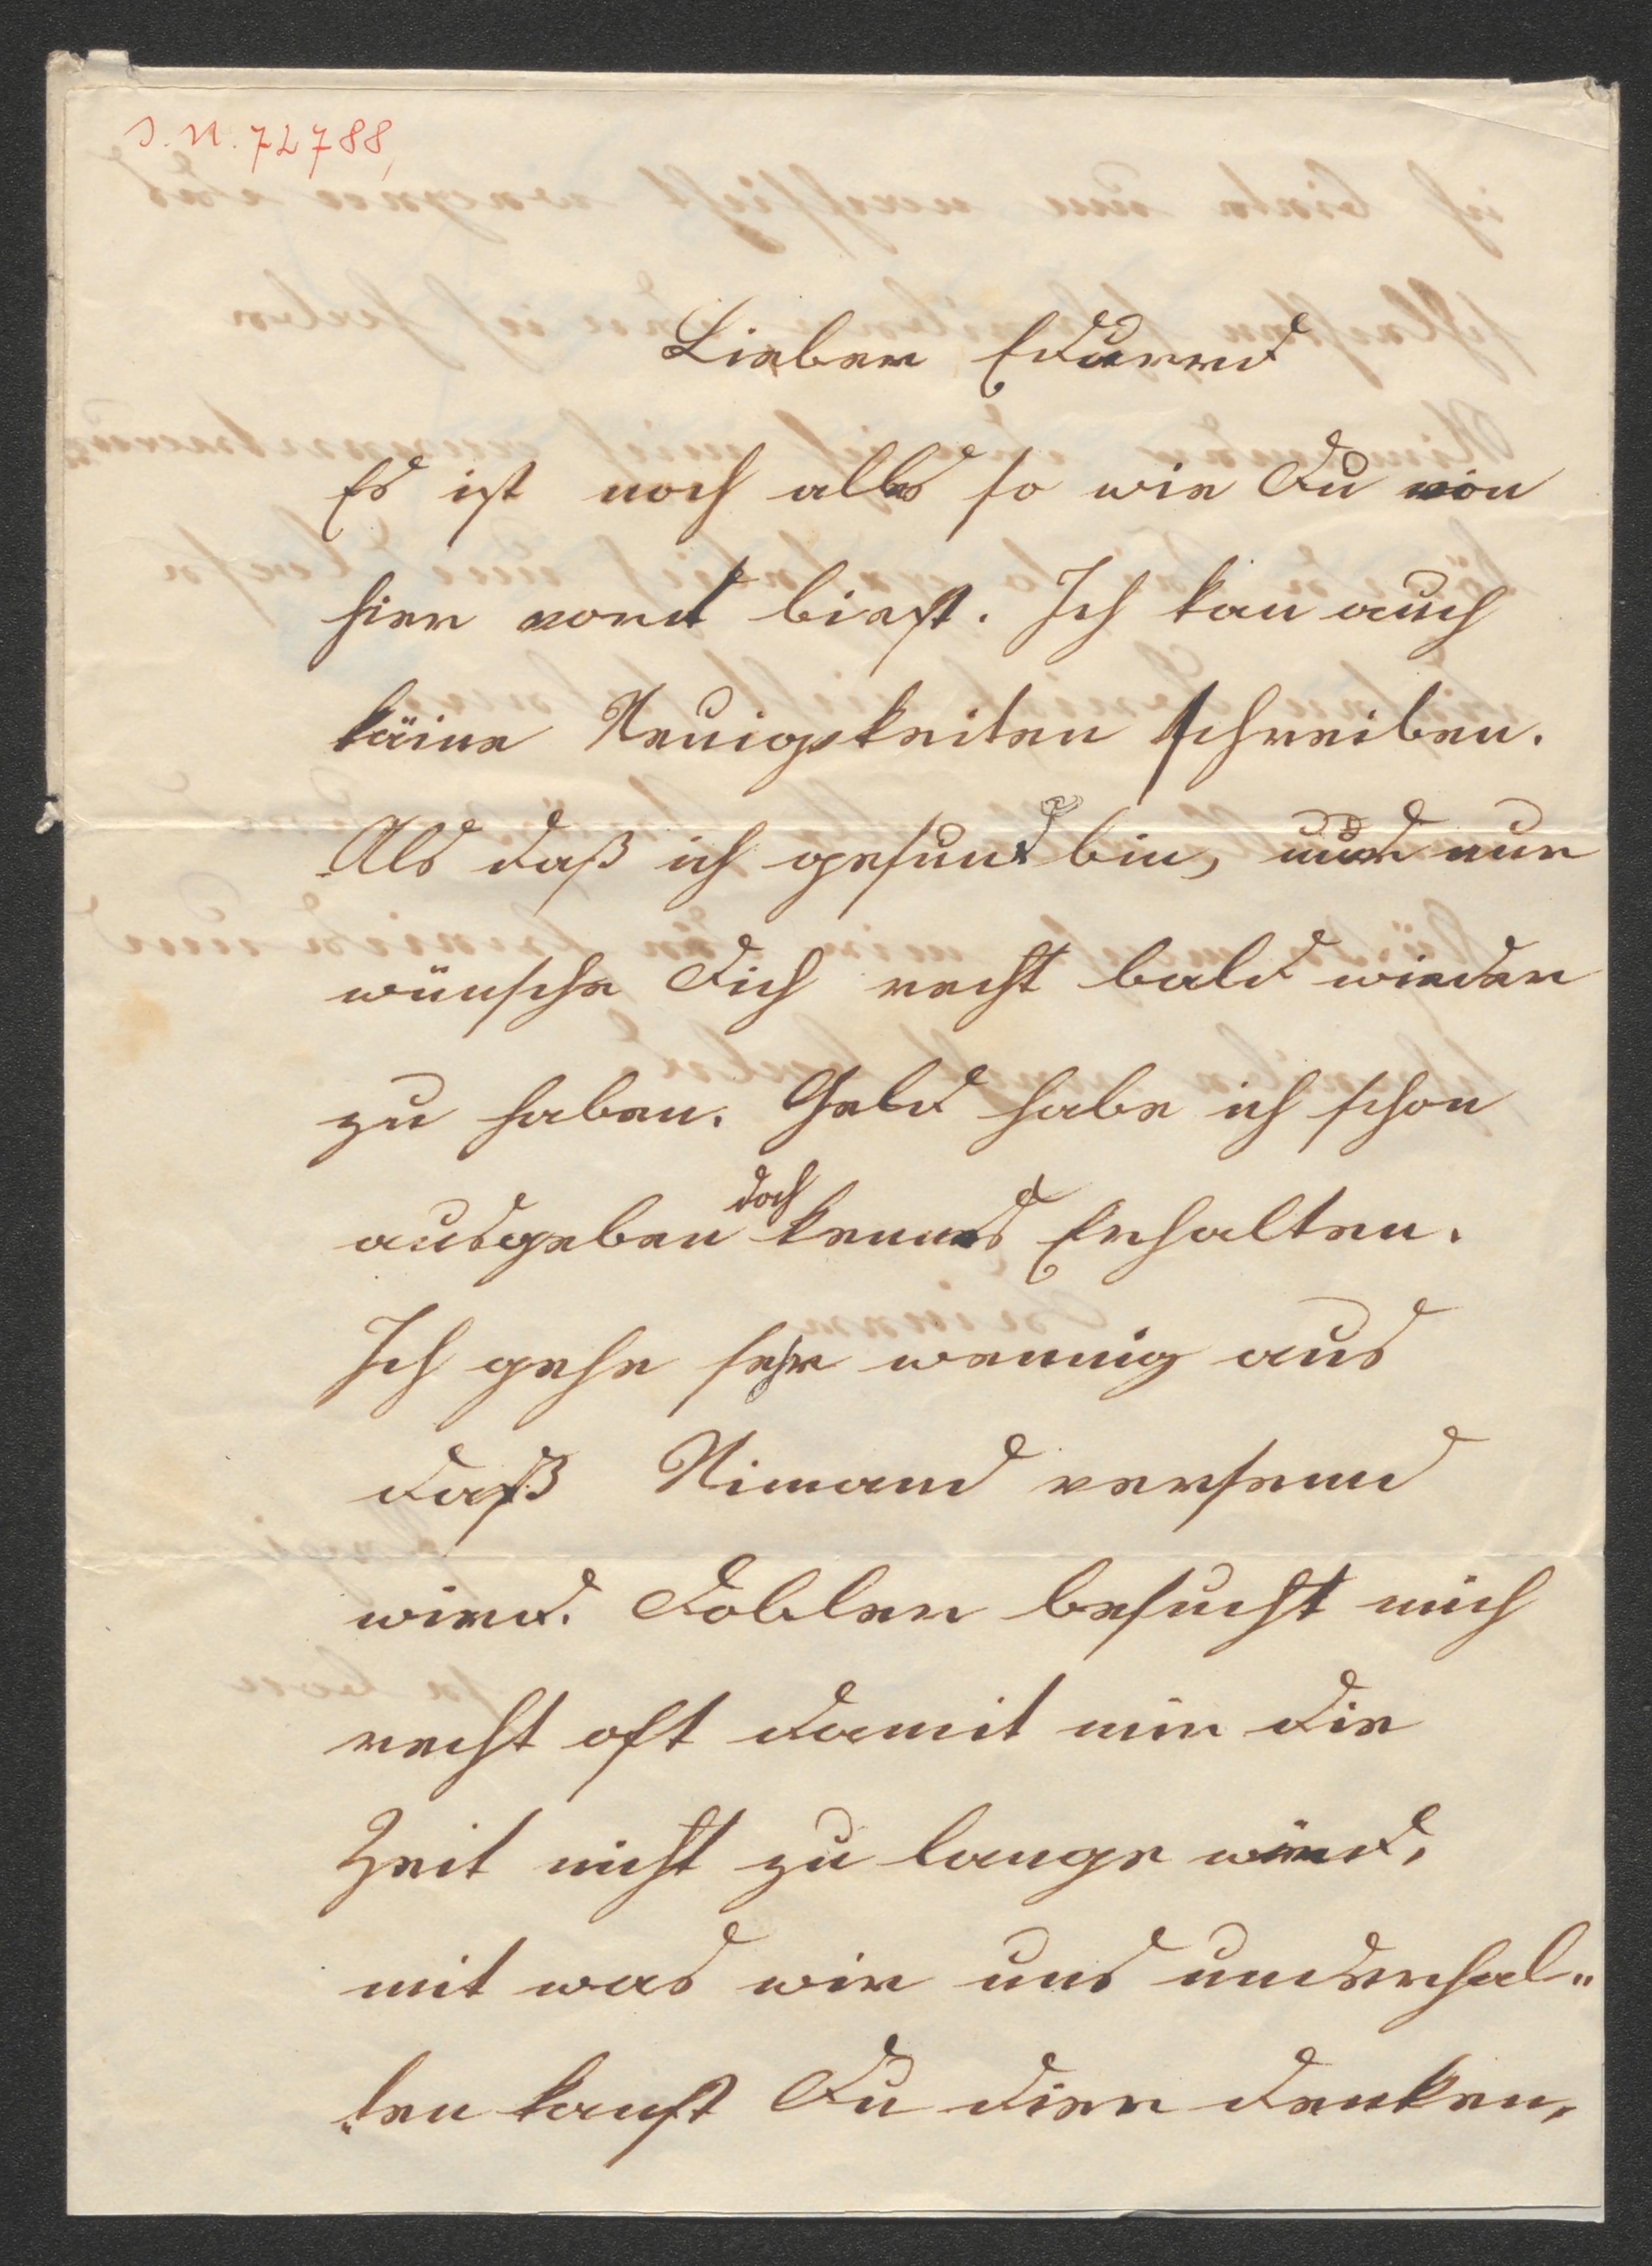 I. N. 72788,
Lieber Eduard
Es ist noch alles so wie Du von
hier vord bießt. Ich kan auch
käine Neuigkeiten schreiben.
Als daß ich gesund bin, und nur
wünsche Dich recht bald wieder
zu haben. Geld habe ich schon
ausgeben doch kennes Erhalten.
Ich gehe sehr wennig aus
daß Nimand versend
wierd. Dobler besucht mich
recht oft damit mir die
Zeit nicht zu lange wird,
mit was wir uns underhal„
„ten kanst Du dier denken,